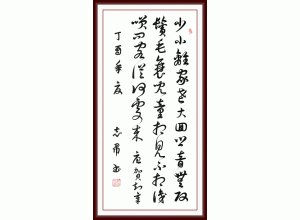 少小離家老大回鄉音無改
鬢毛衰兒童相見不相識
笑問客從何處來 唐賀知章
丁酉年夏 志常書